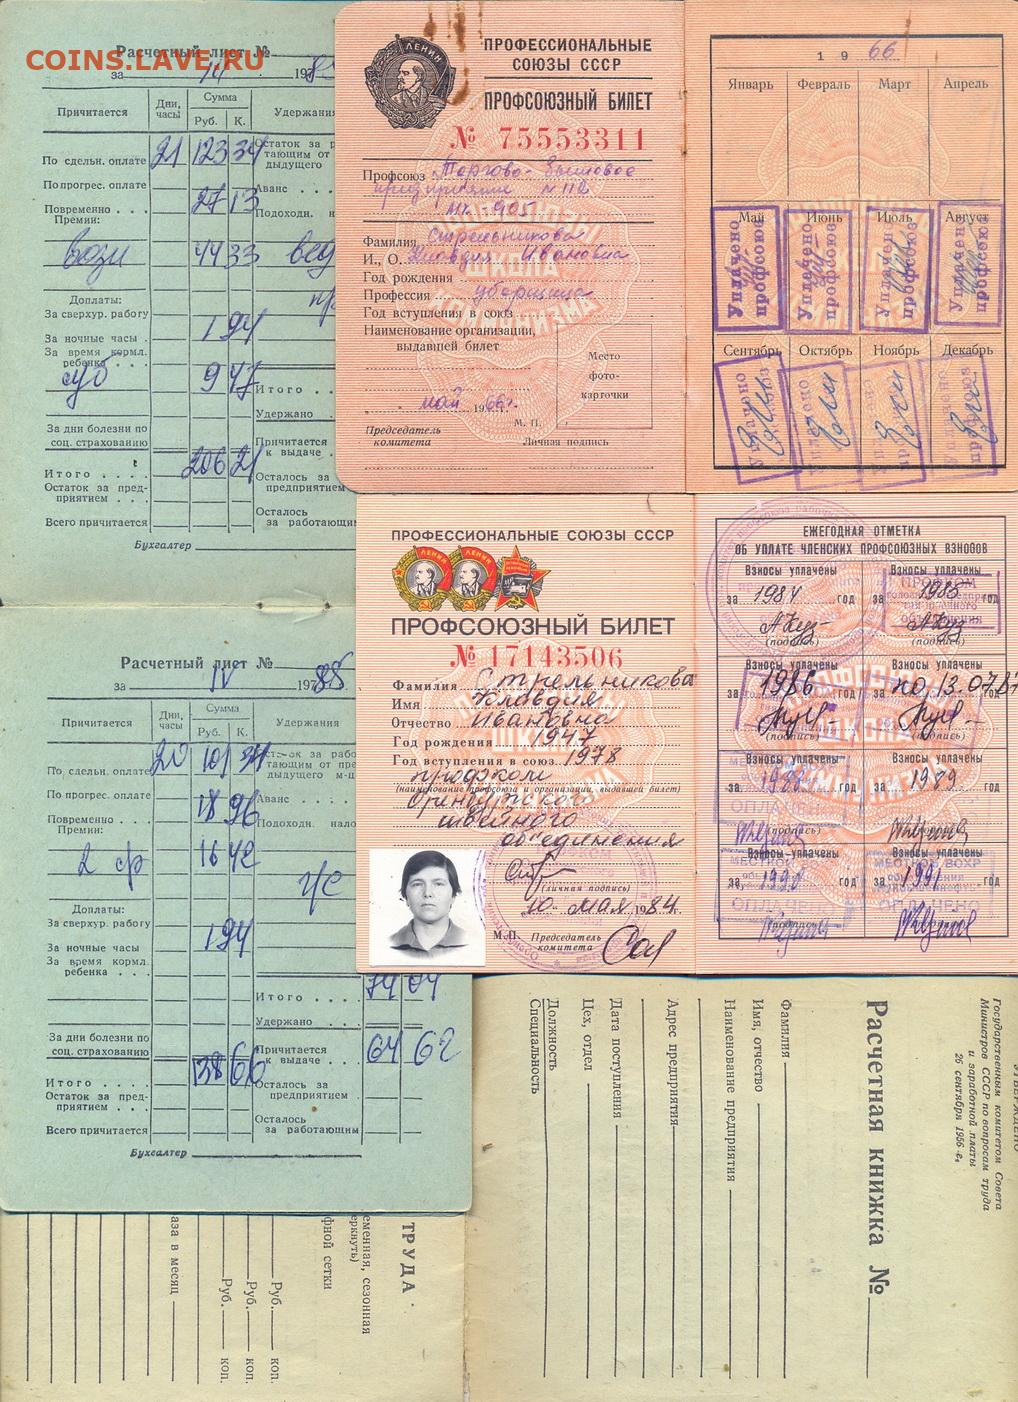 COINS.LAVE.RU
Расчетный лист №
за 197
Причитается
Дни, часы
Сумма
Руб. К.
Удержания
По сдельн. оплате 21 123 34
По прогрес. оплате 27 13
Повременно . . .
Премии:
44 33
Доплаты:
За сверхур. работу
За ночные часы . 1 94
За время кормл.
ребенка . . .
9 47
За дни болезни по
соц. страхованию
Итого . . . . 206 21
Остаток за пред-
приятием . . .
Всего причитается
Аванс . . .
Подоходн.
Итого . . .
Удержано . . .
Причитается
к выдаче . . .
Осталось за
предприятием
Осталось
за работающим
Бухгалтер
ПРОФЕССИОНАЛЬНЫЕ
СОЮЗЫ СССР
ПРОФСОЮЗНЫЙ БИЛЕТ
№ 75553311
Профсоюз Торгово-бытовое
предприятие № 112
маг. 905
Фамилия Стрельникова
И., О. Клавдия Ивановна
Год рождения
Профессия уборщица
Год вступления в союз
Наименование организации,
выдавшей билет
май 1966 г.
М. П.
Место
фото-
карточки
Председатель
комитета
Личная подпись
1966
Январь Февраль Март Апрель
Май Июнь Июль Август
Уплачено профсоюз
Уплачено профсоюз
Уплачено профсоюз
Уплачено профсоюз
Сентябрь Октябрь Ноябрь Декабрь
ПРОФЕССИОНАЛЬНЫЕ СОЮЗЫ СССР
ЛЕНИН ЛЕНИН
ПРОФСОЮЗНЫЙ БИЛЕТ
№ 17143506
Фамилия Стрельникова
Имя Клавдия
Отчество Ивановна
Год рождения 1947
Год вступления в союз 1978
профком
(наименование профсоюза и организации, выдавшей билет)
Оренбургского
швейного
объединения
(личная подпись)
10 мая 1984 г.
М.П. Председатель
комитета
ЕЖЕГОДНАЯ ОТМЕТКА
ОБ УПЛАТЕ ЧЛЕНСКИХ ПРОФСОЮЗНЫХ ВЗНОСОВ
Взносы уплачены Взносы уплачены
за 1984 год за год
(подпись) (подпись)
Взносы уплачены Взносы уплачены
за 1986 год за по 13.07.87
(подпись) (подпись)
Взносы уплачены Взносы уплачены
за 1988 год за 1989 год
(подпись) (подпись)
Взносы уплачены Взносы уплачены
за 1990 год за 1991 год
ОПЛАЧЕНО ОПЛАЧЕНО
Расчетный лист №
за IV 1985
Причитается
Дни, часы
Сумма
Руб. К.
Удержания
По сдельн. оплате 20 101 34
По прогрес. оплате 18 96
Повременно . . .
Премии:
16 42
Доплаты:
За сверхур. работу
За ночные часы 1 94
За время кормл.
ребенка . . .
За дни болезни по
соц. страхованию
Итого . . . . 138 66
Остаток за пред-
приятием . . .
Всего причитается
Аванс . . .
Итого . . . . 74 04
Удержано . . . .
Причитается
к выдаче . . . 64 62
Осталось за
предприятием
Осталось
за работающим
Бухгалтер
УТВЕРЖДЕНО
Государственным комитетом Совета
Министров СССР по вопросам труда
и заработной платы
26 сентября 1956 г.
Расчетная книжка №
Фамилия
Имя, отчество
Наименование предприятия
Адрес предприятия
Дата поступления
Цех, отдел
Должность
Специальность
ТРУДА
еменная, сезонная
еркнуть)
фной сетки
Руб. коп.
Руб. коп.
Руб. коп.
аза в месяц